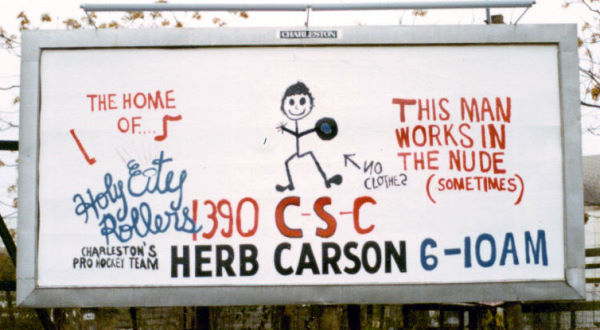 CHARLESTON
THE HOME
OF....
Holy City
Rollers
CHARLESTON'S
PRO HOCKEY TEAM
NO
CLOTHES
THIS MAN
WORKS IN
THE NUDE
(SOMETIMES)
1390 C-S-C
HERB CARSON 6-10AM